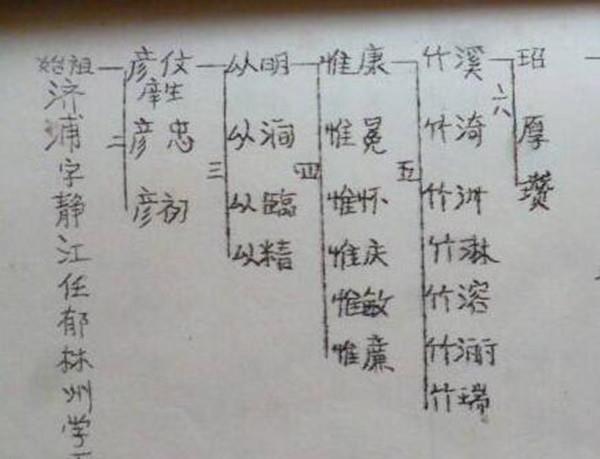 始祖济浦字静江任郁林州学
二
彦伩
庠生
彦忠
彦初
三
从明
从涧
从臨
从精
四
惟康
惟冕
惟怀
惟庆
惟敏
惟廉
五
竹溪
竹漪
竹洲
竹淋
竹溶
竹瑞
六
玿
厚
瓒